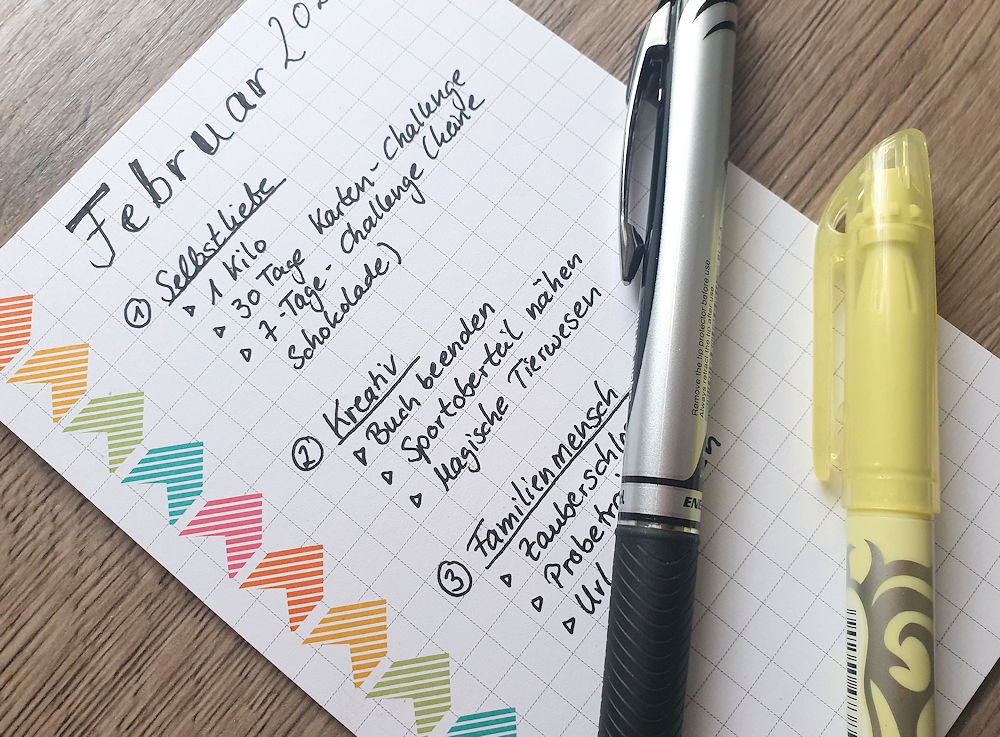 Februar
① Selbstliebe
▷ 1 Kilo
▷ 30 Tage Karten-Challenge
▷ 7-Tage-Challenge (keine
Schokolade)
② Kreativ
▷ Buch beenden
▷ Sportoberteil nähen
▷ Magische Tierwesen
③ Familienmensch
Remove the tip protector before use.
Always retract the tip after use.